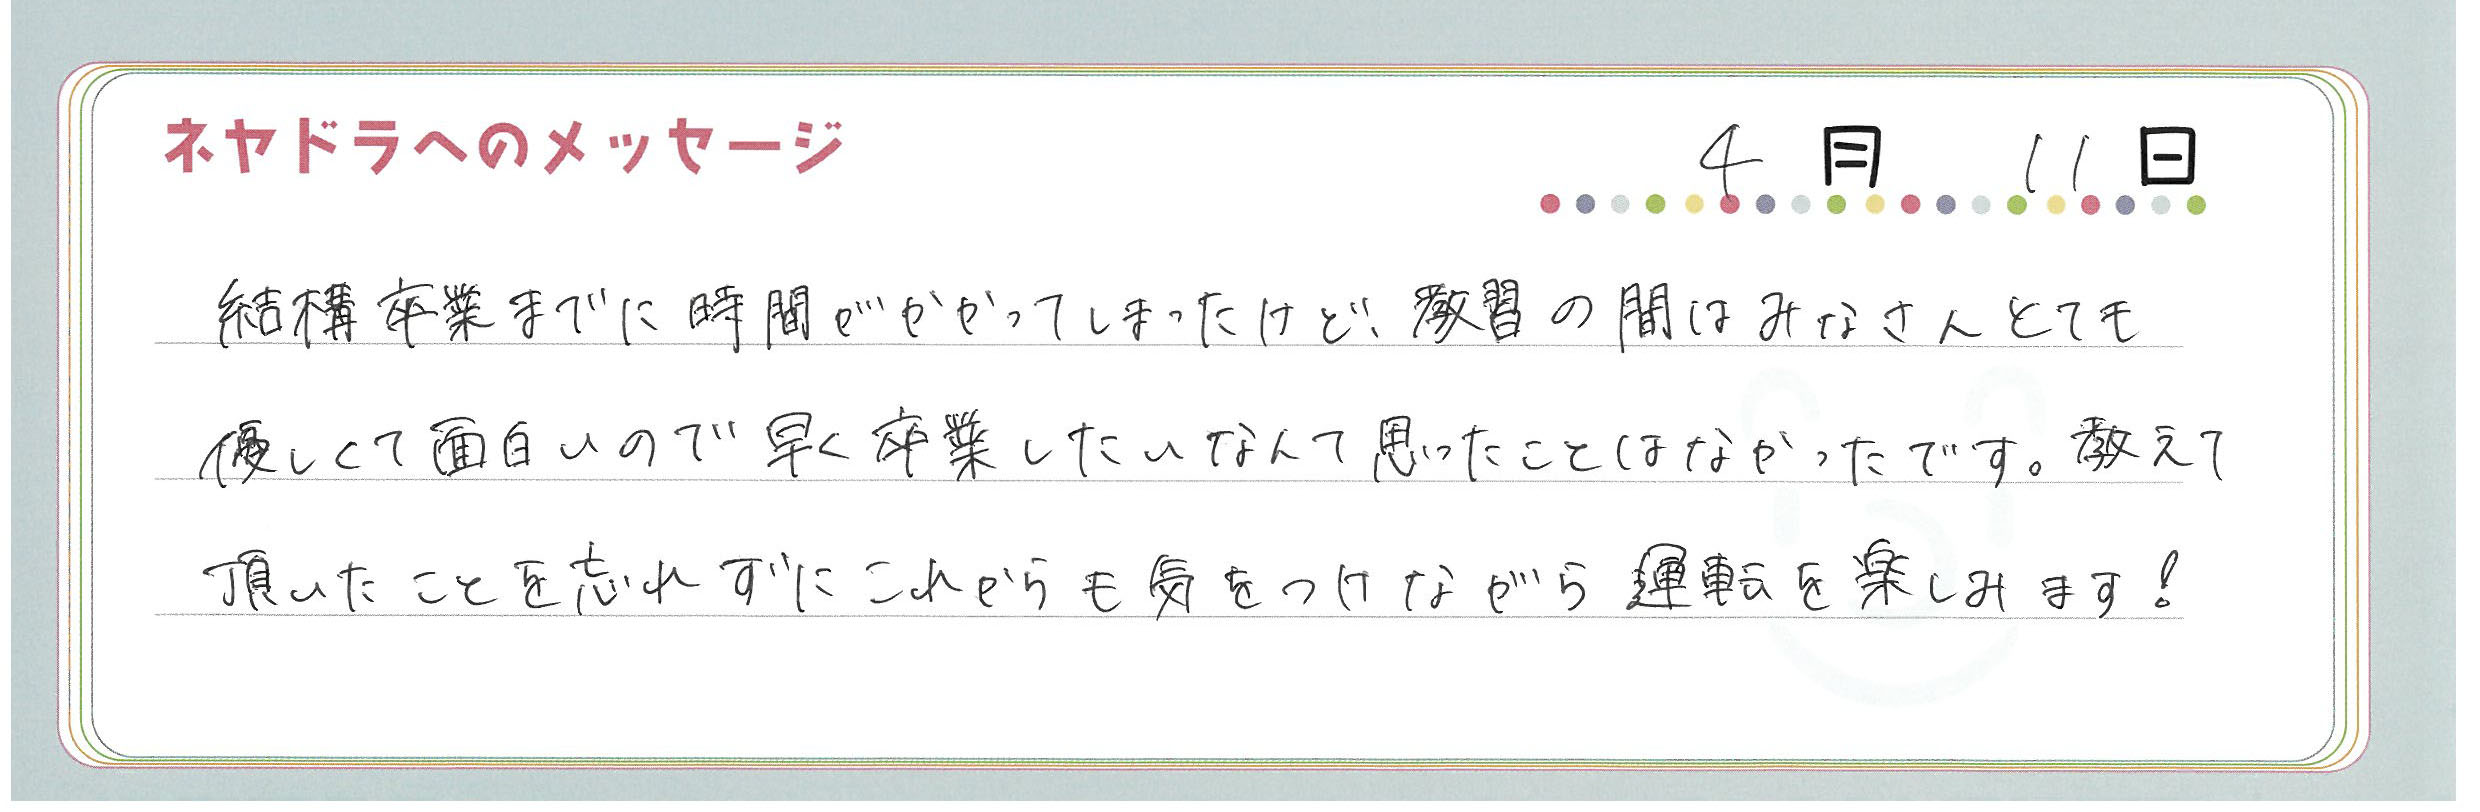 ネヤドラへのメッセージ
4月 11日
結構卒業までに時間がかかってしまったけど、教習の間はみなさんとても
優しくて面白いので早く卒業したいなんて思ったことはなかったです。教えて
頂いたことを忘れずにこれからも気をつけながら運転を楽しみます!